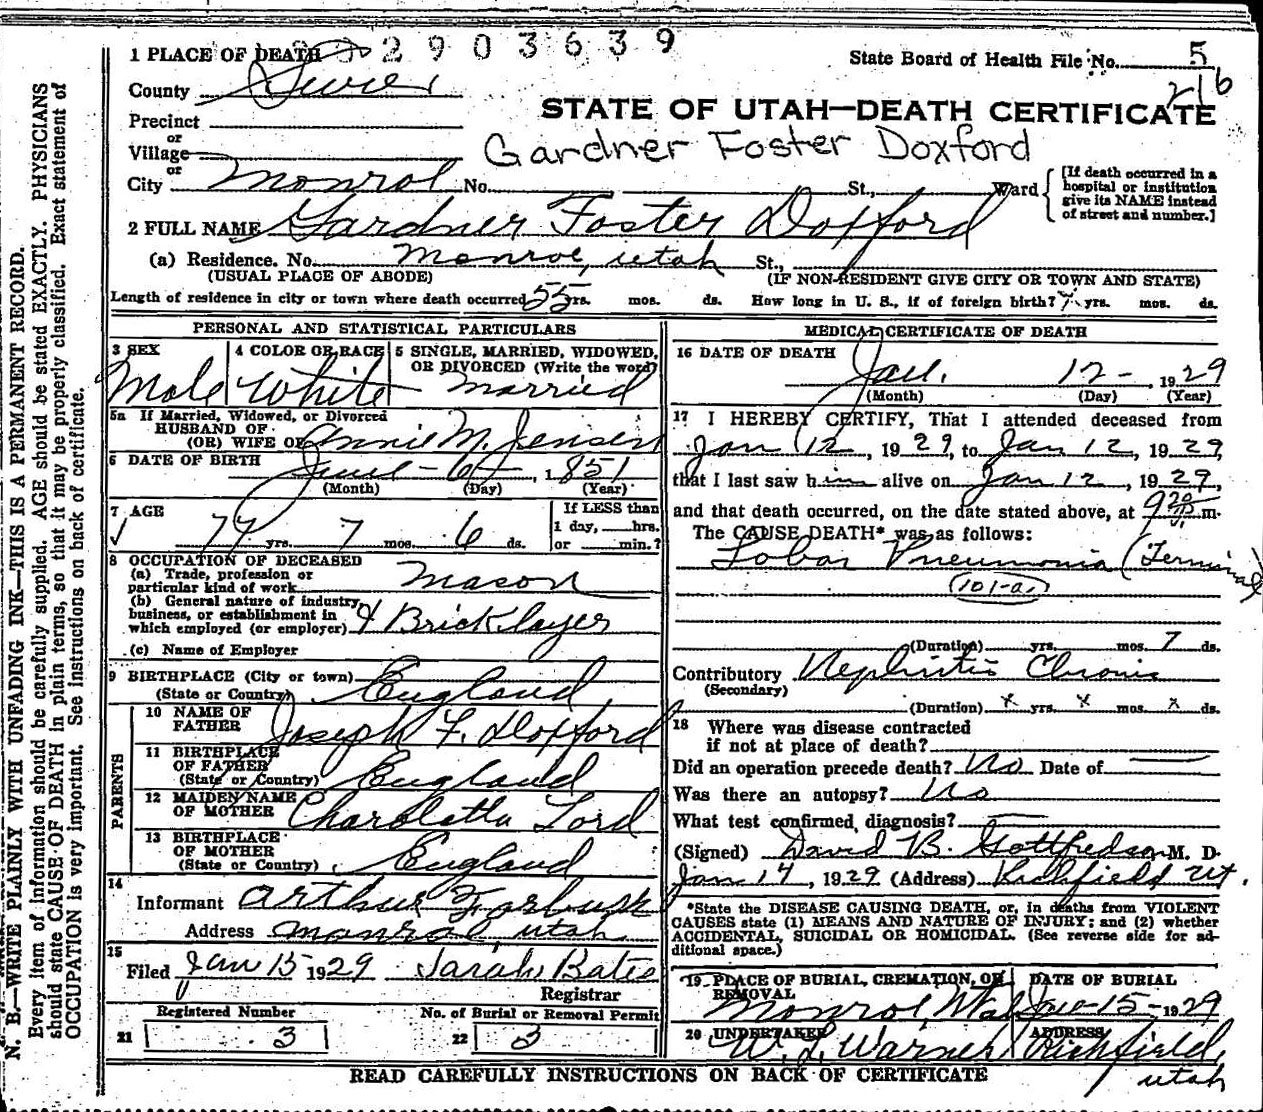 2903639
1 PLACE OF DEATH
State Board of Health File No. 5
216
County Sevier
STATE OF UTAH—DEATH CERTIFICATE
Precinct
or
Village
Gardner Foster Doxford
or
City Monroe No. St., Ward
[If death occurred in a
hospital or institution
give its NAME instead
of street and number.]
2 FULL NAME Gardner Foster Doxford
(a) Residence. No. Monroe, utah St.,
(USUAL PLACE OF ABODE) (IF NON-RESIDENT GIVE CITY OR TOWN AND STATE)
Length of residence in city or town where death occurred 55 yrs. mos. ds. How long in U. S., if of foreign birth? yrs. mos. ds.
PERSONAL AND STATISTICAL PARTICULARS
3 SEX 4 COLOR OR RACE 5 SINGLE, MARRIED, WIDOWED,
OR DIVORCED (Write the word)
Male White Married
5a If Married, Widowed, or Divorced
HUSBAND OF
(OR) WIFE OF Annie M. Jensen
6 DATE OF BIRTH June - 6 - 1851
(Month) (Day) (Year)
7 AGE 77 yrs. 7 mos. 6 ds.
If LESS than
1 day, hrs.
or min.?
8 OCCUPATION OF DECEASED
(a) Trade, profession or
particular kind of work Mason
(b) General nature of industry,
business, or establishment in
which employed (or employer) & Bricklayer
(c) Name of Employer
9 BIRTHPLACE (City or town)
(State or Country) England
PARENTS
10 NAME OF
FATHER Joseph F. Doxford
11 BIRTHPLACE
OF FATHER
(State or Country) England
12 MAIDEN NAME
OF MOTHER Charoletta Lord
13 BIRTHPLACE
OF MOTHER
(State or Country) England
14
Informant Arthur
Address Monroe utah
15
Filed Jan 15 1929 Sarah Bates
Registrar
Registered Number No. of Burial or Removal Permit
21 3 22 3
MEDICAL CERTIFICATE OF DEATH
16 DATE OF DEATH
Jan. 12 - , 1929
(Month) (Day) (Year)
17 I HEREBY CERTIFY, That I attended deceased from
Jan 12, 1929, to Jan 12, 1929,
that I last saw him alive on Jan 12, 1929,
and that death occurred, on the date stated above, at 9 20 m.
The CAUSE DEATH* was as follows:
Lobar Pneumonia (Terminal)
101-a.
(Duration) yrs. mos. 7 ds.
Contributory Nephritis Chronic
(Secondary)
(Duration) x yrs. x mos. x ds.
18 Where was disease contracted
if not at place of death?
Did an operation precede death? No Date of
Was there an autopsy? No
What test confirmed, diagnosis?
(Signed) David B. Gottfredson M. D.
Jan 14, 1929 (Address) Richfield Ut.
*State the DISEASE CAUSING DEATH, or, in deaths from VIOLENT
CAUSES state (1) MEANS AND NATURE OF INJURY; and (2) whether
ACCIDENTAL, SUICIDAL OR HOMICIDAL. (See reverse side for ad-
ditional space.)
19 PLACE OF BURIAL, CREMATION, OR
REMOVAL DATE OF BURIAL
Monroe Utah Jan - 15 - 1929
20 UNDERTAKER ADDRESS
W. L. Warner Richfield,
utah
READ CAREFULLY INSTRUCTIONS ON BACK OF CERTIFICATE
N. B.—WRITE PLAINLY WITH UNFADING INK—THIS IS A PERMANENT RECORD.
Every item of information should be carefully supplied. AGE should be stated EXACTLY. PHYSICIANS
should state CAUSE OF DEATH in plain terms, so that it may be properly classified. Exact statement of
OCCUPATION is very important. See instructions on back of certificate.